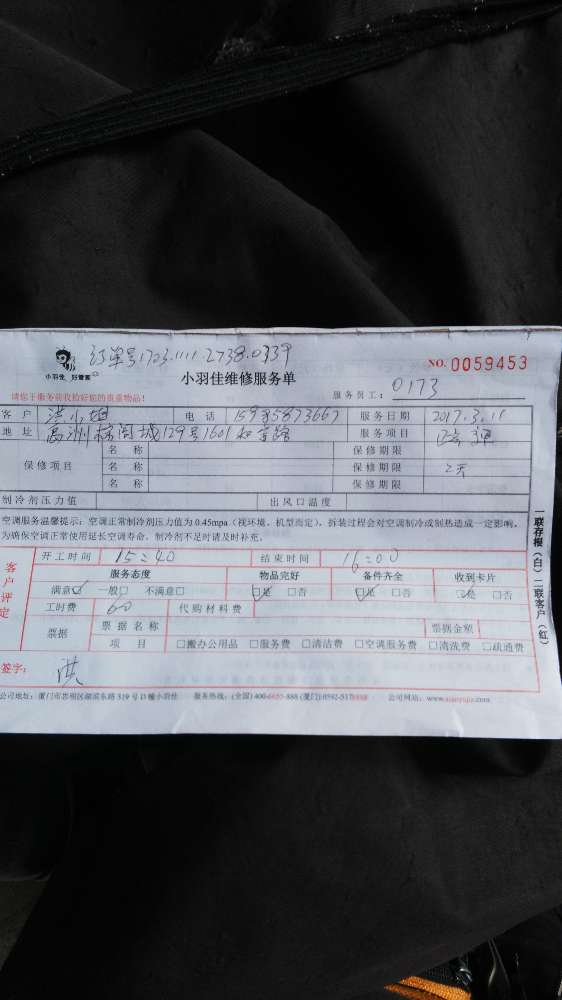 订单号1723.1111.2738.0339
小羽佳 好管家
NO. 0059453
小羽佳维修服务单
服务员工: 0173
请您于服务前收捡好您的贵重物品!
客户 洪小姐 电话 服务日期 2017.3.11
地址 129号1601 服务项目
保修项目 名称 保修期限
名称 保修期限 2天
名称 保修期限
制冷剂压力值 出风口温度
空调服务温馨提示: 空调正常制冷剂压力值为 0.45mpa (视环境、机型而定), 拆装过程会对空调制冷或制热造成一定影响,
为确保空调正常使用延长空调寿命, 制冷剂不足时请及时补充。
客户评定
开工时间 15:40 结束时间 16:00
服务态度 物品完好 备件齐全 收到卡片
满意☑ 一般□ 不满意□ ☑是 □否 ☑是 □否 ☑是 □否
工时费 60 代购材料费
票据 票据名称 票据金额
项目 □搬办公用品 □服务费 □清洁费 □空调服务费 □清洗费 □疏通费
签字: 洪
一联存根(白) 二联客户(红)
公司地址: 厦门市思明区湖滨东路 319 号 服务热线: (全国) 400-6655-888 (厦门) 公司网站: